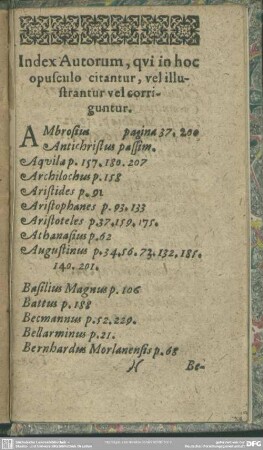 Index Autorum, qvi in hoc
opusculo citantur, vel illu-
strantur vel corri-
guntur.
AMbrosius pagina 37. 200
Antichristus passim.
Aqvila p. 157. 180. 207
Archilochus p. 158
Aristides p. 91
Aristophanes p. 93. 133
Aristoteles p. 37. 159. 175.
Athanasius p. 62
Augustinus p. 34. 56. 73. 132. 181.
140. 201.
Basilius Magnus p. 106
Battus p. 188
Becmannus p. 52. 229.
Bellarminus p. 21.
Bernhardus Morlanensis p. 68
Be-